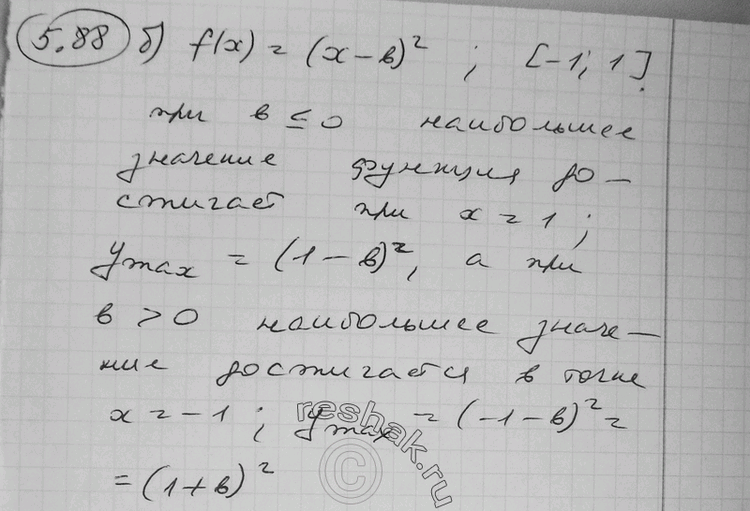 5.88 б) f(x) = (x – в)² ; [-1; 1].
при в ≤ 0 наибольшее
значение функция до –
стигает при x = 1 ;
y max = (1 – в)², а при
в > 0 наибольшее значе –
ние достигается в точке
x = -1 ; y max = (-1 – в)² =
= (1 + в)²
reshak.ru
©